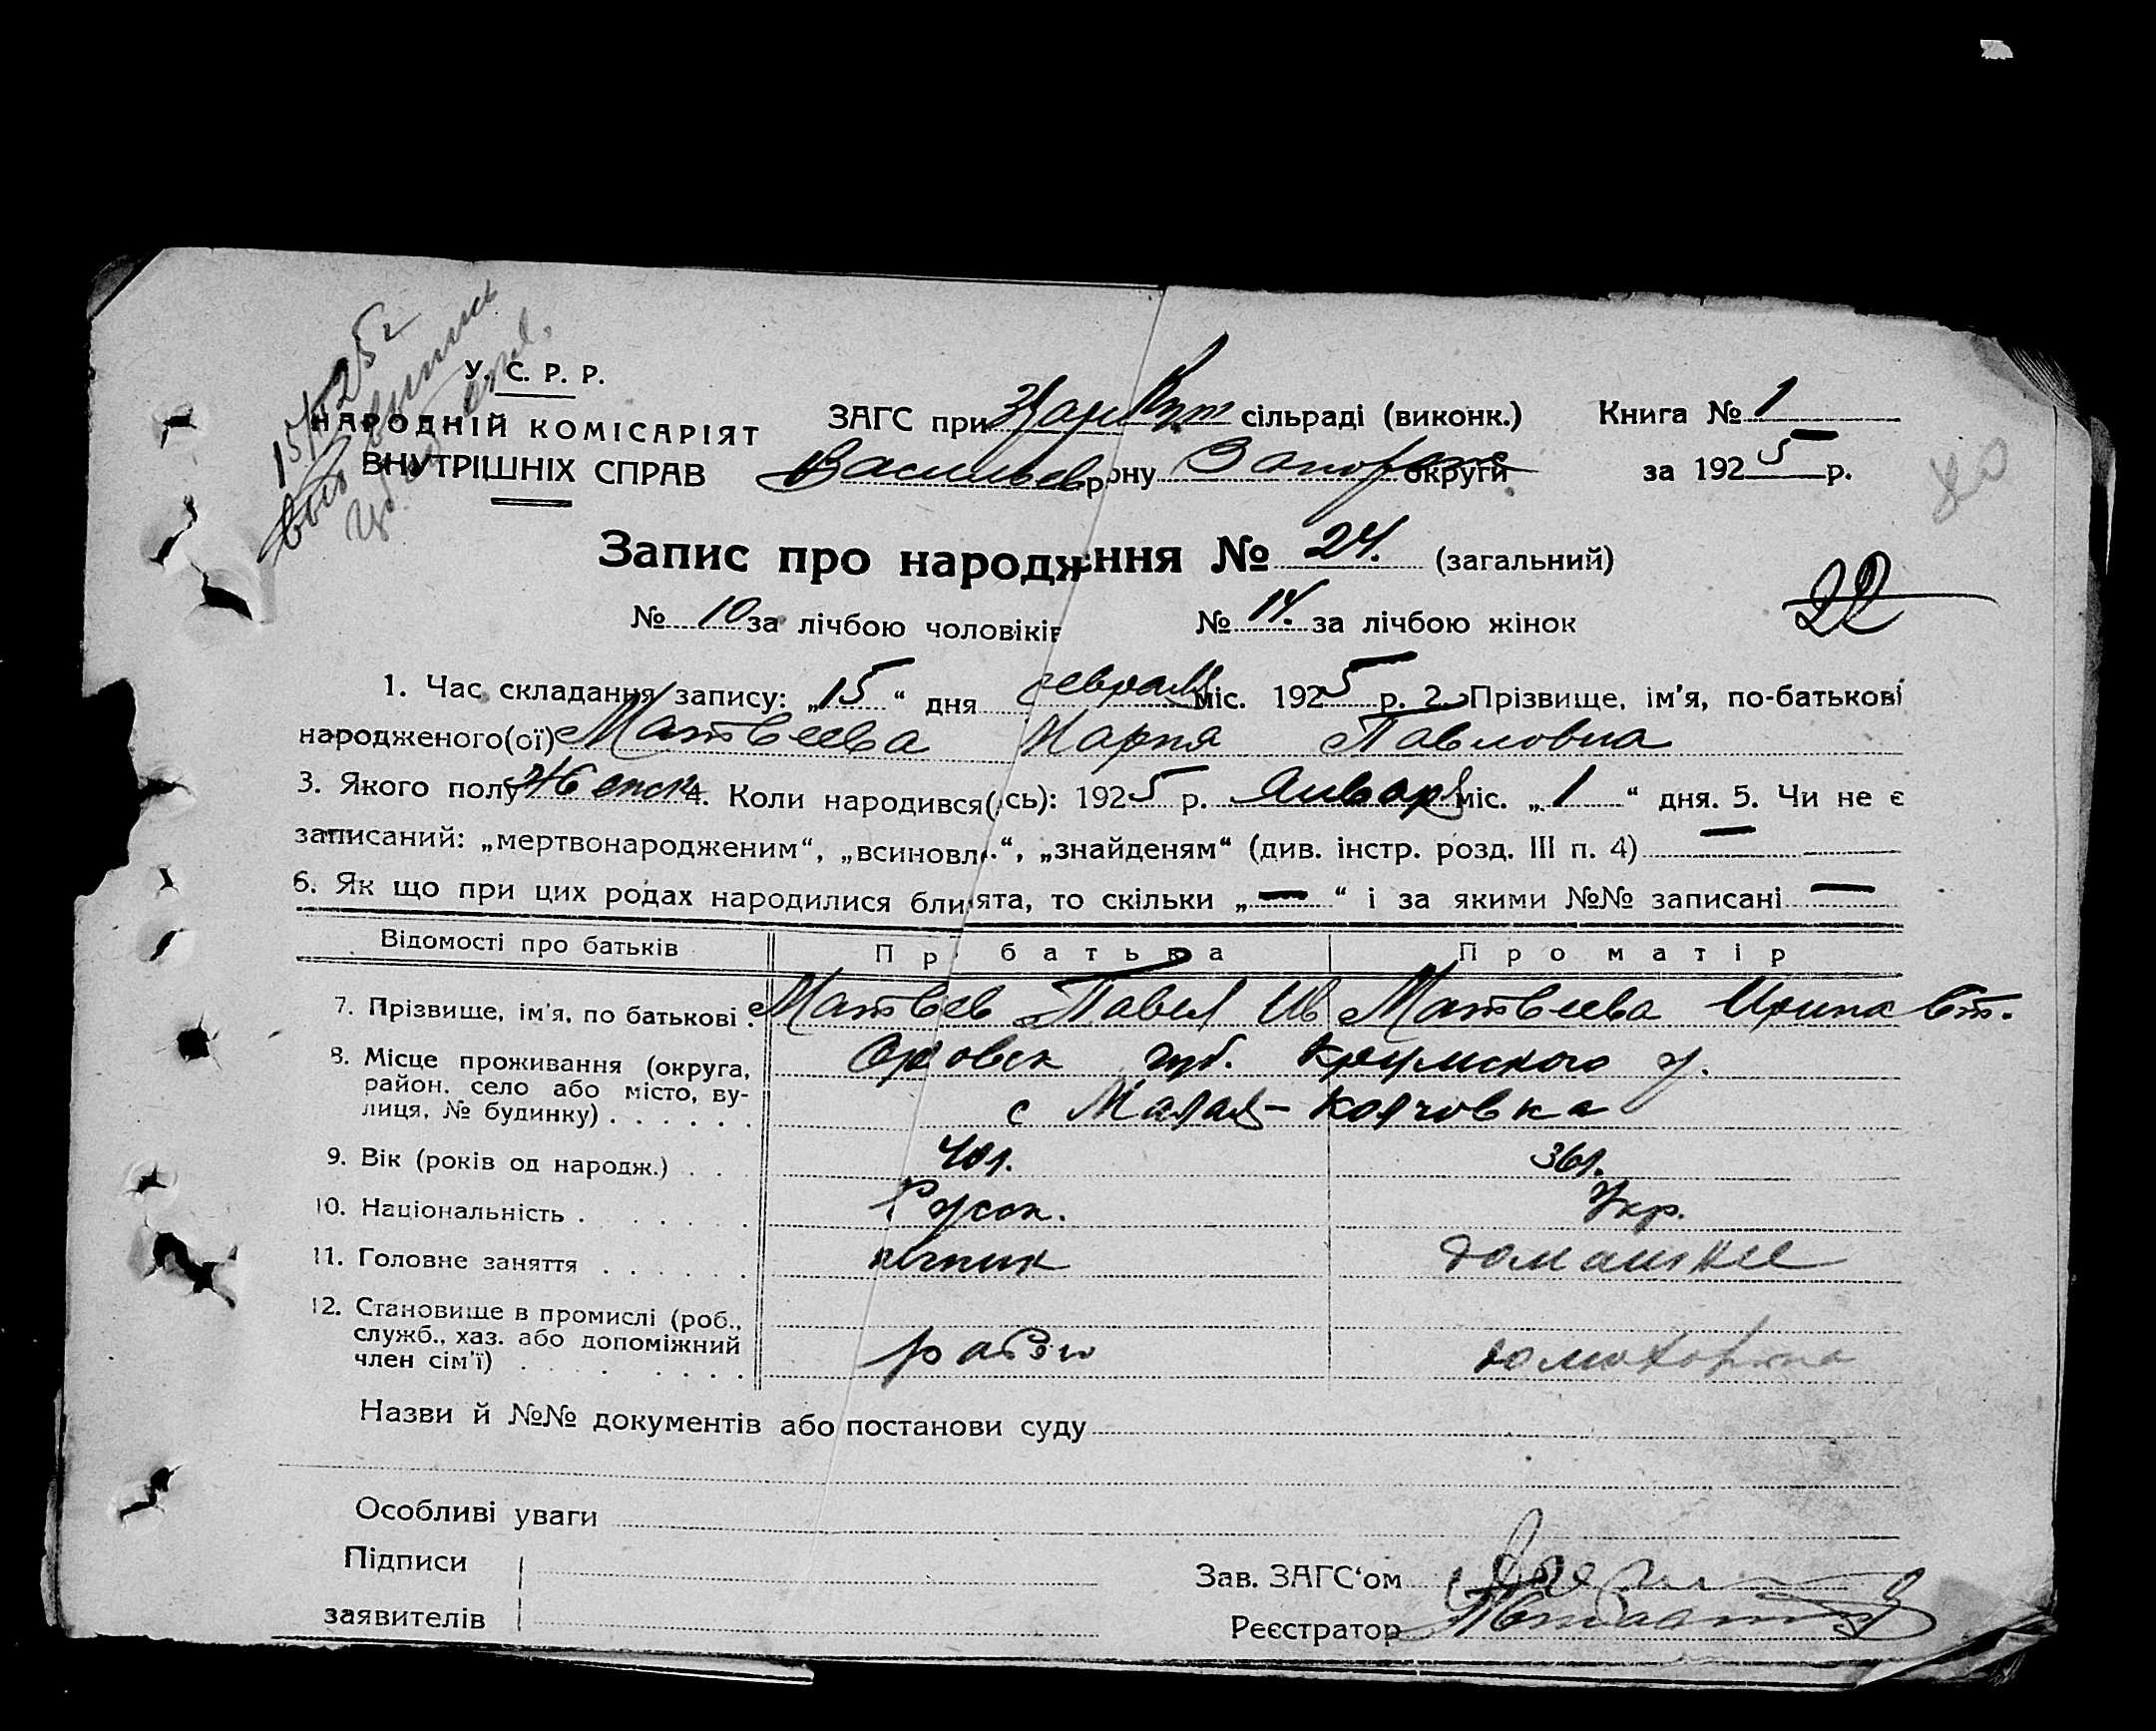 15/II 25 г
У. С. Р. Р.
НАРОДНІЙ КОМІСАРІЯТ
ВНУТРІШНІХ СПРАВ
ЗАГС при сільраді (виконк.) Книга № 1
Васильев рону Запорож округи за 1925 р.
80
Запис про народження № 24. (загальний)
22
№ 10 за лічбою чоловіків № 14. за лічбою жінок
1. Час складання запису: „15“ дня февраля міс. 1925 р. 2. Прізвище, ім'я, по-батькові
народженого(ої) Матвеева Мария Павловна
3. Якого полу Женск 4. Коли народився(сь): 1925 р. Январ міс. „1“ дня. 5. Чи не є
записаний: „мертвонародженим“, „всиновл.“, „знайденям“ (див. інстр. розд. III п. 4) —
6. Як що при цих родах народилися близнята, то скільки „—“ і за якими №№ записані —
Відомості про батьків Про батька Про матір
7. Прізвище, ім'я, по батькові . Матвеев Павел Ив Матвеева Ирина
8. Місце проживання (округа, район, село або місто, вулиця, № будинку) . . . . . . Орловск губ. у.
с Малая-Колчовка
9. Вік (років од народж.) . . . 40 л. 36 л.
10. Національність . . . . . . . Русск. Укр.
11. Головне заняття . . . . . . печник домашнее
12. Становище в промислі (роб., служб., хаз. або допоміжний член сім'ї) . . . . . . . .
Назви й №№ документів або постанови суду
Особливі уваги
Підписи
заявителів
Зав. ЗАГС'ом
Реєстратор